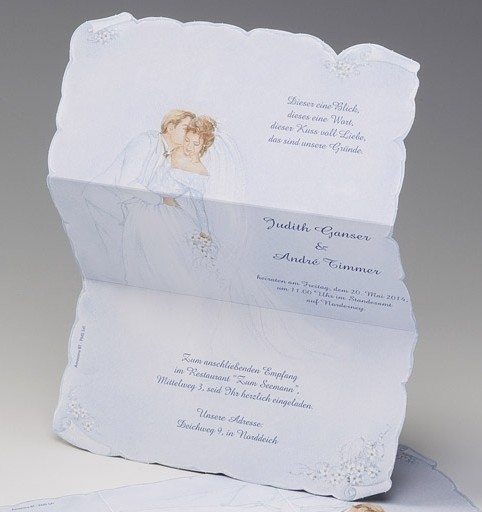 Dieser eine Blick,
dieses eine Wort,
dieser Kuss voll Liebe,
das sind unsere Gründe.
Judith Ganser
&
André Timmer
heiraten am Freitag, dem 20. Mai 2014,
um 11.00 Uhr im Standesamt
auf Norderney.
Zum anschließenden Empfang
im Restaurant "Zum Seemann",
Mittelweg 3, seid Ihr herzlich eingeladen.
Unsere Adresse:
Deichweg 9, in Norddeich